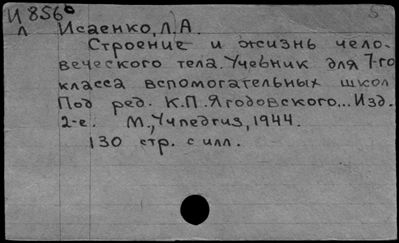 И 8566 5
л Исаенко, Л.А.
Строение и жизнь чело-
веческого тела. Учебник для 7-го
класса вспомогательных школ
Под ред. К.П.Ягодовского... Изд.
2-е. М., Учпедгиз, 1944.
130 стр. с илл.